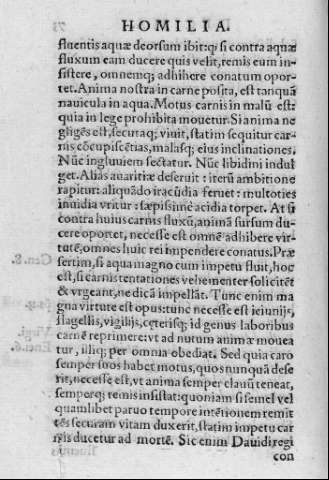 HOMILIA.
fluentis aquæ deorsum ibit: q̃ si contra aquæ
fluxum eam ducere quis velit, remis eum in-
sistere, omnemq; adhibere conatum opor-
tet. Anima nostra in carne posita, est tanquã
nauicula in aqua. Motus carnis in malũ est:
quia in lege prohibita mouetur. Si anima ne
gligẽs est, secuta q; viuit, statim sequitur car-
nis cõcupiscẽtias, malasq; eius inclinationes.
Nũc ingluuiem sectatur. Nũc libidini indul
get. Alias auaritiæ deseruit: iterũ ambitione
rapitur: aliquãdo iracũdia feruet: multoties
inuidia vritur: sæpissimè acidia torpet. At si
contra huius carnis fluxũ, animã sursum du-
cere oportet, necesse est omnẽ adhibere vir-
tutẽ, omnes huic rei impendere conatus. Præ
sertim, si aqua magno cum impetu fluit, hoc
est, si carnis tentationes vehementer solicitẽt
& vrgeant, ne dicã impellãt. Tunc enim ma
gna virtute est opus: tunc necesse est ieiunijs,
flagellis, vigilijs, cęterisq; id genus laboribus
carnẽ reprimere: vt ad nutum animæ mouea
tur, illiq; per omnia obediat. Sed quia caro
semper suos habet motus, quos nunquã dese
rit, necesse est, vt anima semper clauũ teneat,
semperq; remis insistat: quoniam si semel vel
quamlibet paruo tempore intẽtionem remit
tẽs securam vitam duxerit, statim impetu car
nis ducetur ad mortẽ. Sic enim Dauidi regi
con
Gen. 8.